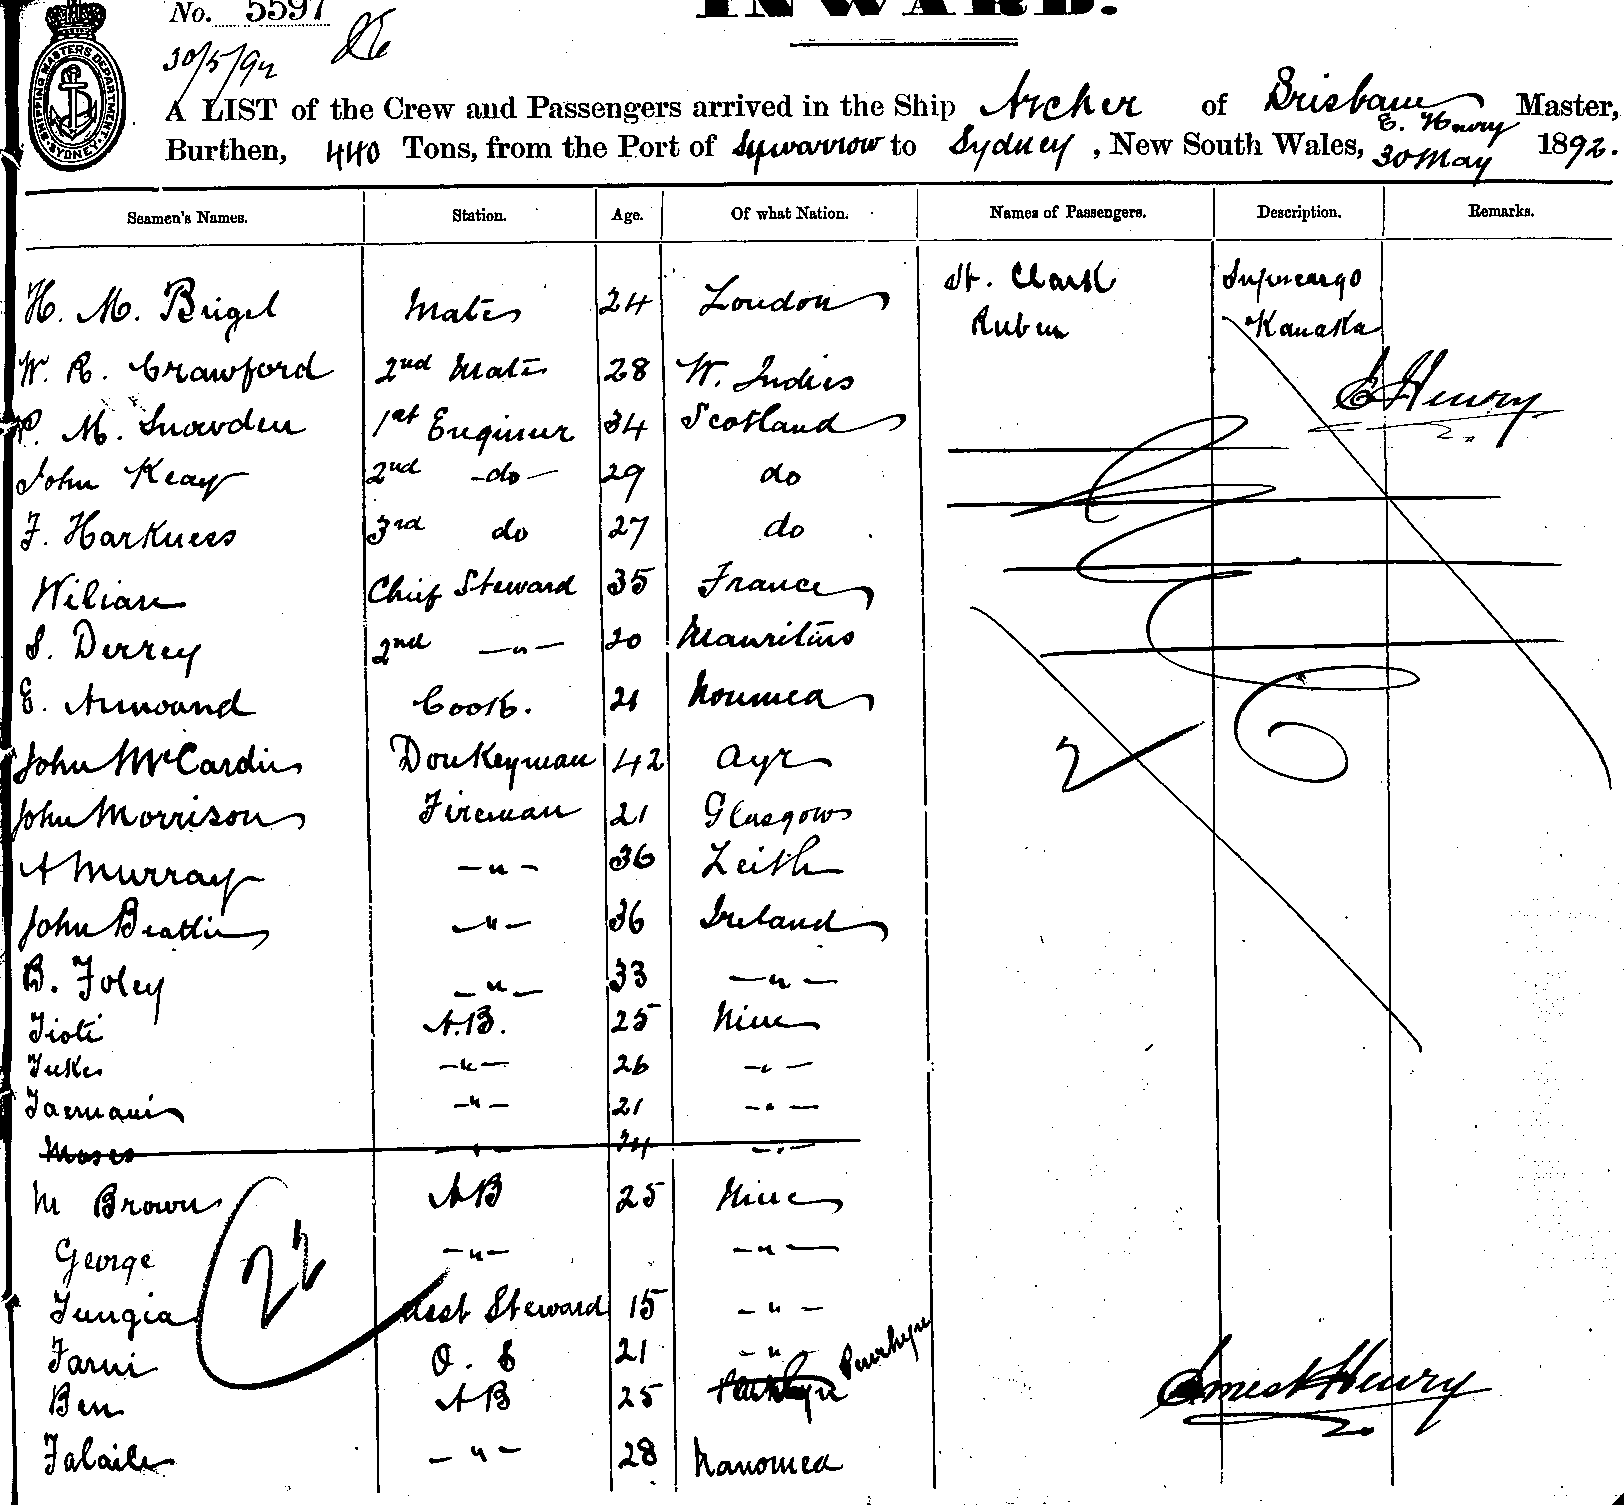 No. 5597
INWARD.
30/5/92
SHIPPING MASTERS DEPARTMENT SYDNEY
A LIST of the Crew and Passengers arrived in the Ship Archer of Brisbane Master,
E. Henry
Burthen, 440 Tons, from the Port of Sywarrow to Sydney, New South Wales, 30 May 1892.
Seamen's Names. Station. Age. Of what Nation. Names of Passengers. Description. Remarks.
H. M. Brigel Mate 24 London St. Clark Supercargo
Ruben Kanaka
W. R. Crawford 2nd Mate 28 W. Indies
E Henry
P. M. Snowden 1st Engineer 34 Scotland
John Keay 2nd -do- 29 do
F. Harkness 3rd do 27 do
Wilian Chief Steward 35 France
S. Derrey 2nd —"— 20 Mauritius
E. Armand Cook. 21 Noumea
John McCardie Donkeyman 42 Ayr 2
John Morrison Fireman 21 Glasgow
A Murray —"— 36 Leith
John Beattie —"— 36 Ireland
B. Foley —"— 33 —"—
Tioti A.B. 25 Niue
Tuke —"— 26 —"—
Taemani —"— 21 —"—
Moses —"— 24 —"—
M Brown AB 25 Niue
George —"— —"—
22
Tungia Asst Steward 15 —"—
Tarui O. S 21 —"—
Penrhyn
Ben AB 25
Ernest Henry
Falaile —"— 28 Nanomea